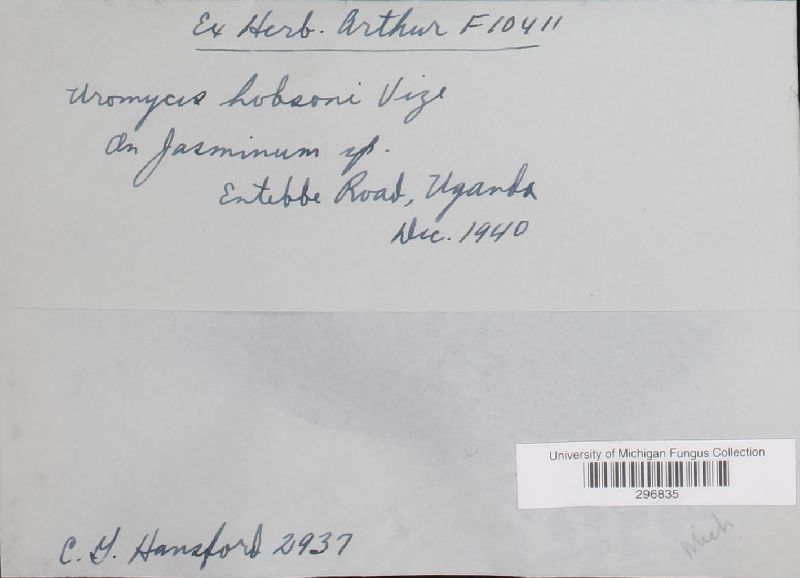 Ex Herb. Arthur F10411
Uromyces hobsoni Vize
On Jasminum sp.
Entebbe Road, Uganda
Dec. 1940
University of Michigan Fungus Collection
296835
C. G. Hansford 2937
Mich